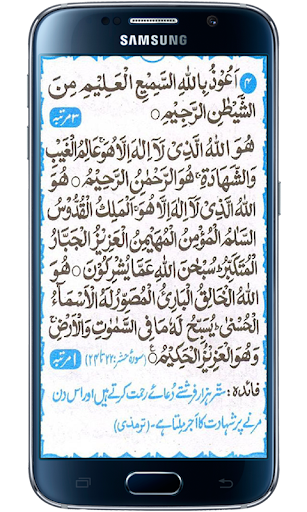 SAMSUNG
۴ اَعُوْذُ بِاللّٰهِ السَّمِيْعِ الْعَلِيْمِ مِنَ
الشَّيْطٰنِ الرَّجِيْمِ ○ ۳ مرتبہ
هُوَ اللّٰهُ الَّذِىْ لَآ اِلٰهَ اِلَّا هُوَ ۚ عَالِمُ الْغَيْبِ
وَالشَّهَادَةِ ۚ هُوَ الرَّحْمٰنُ الرَّحِيْمُ ○ هُوَ
اللّٰهُ الَّذِىْ لَآ اِلٰهَ اِلَّا هُوَ ۚ اَلْمَلِكُ الْقُدُّوْسُ
السَّلٰمُ الْمُؤْمِنُ الْمُهَيْمِنُ الْعَزِيْزُ الْجَبَّارُ
الْمُتَكَبِّرُ ؕ سُبْحٰنَ اللّٰهِ عَمَّا يُشْرِكُوْنَ ○ هُوَ
اللّٰهُ الْخَالِقُ الْبَارِئُ الْمُصَوِّرُ لَهُ الْاَسْمَآءُ
الْحُسْنٰى ؕ يُسَبِّحُ لَهٗ مَا فِى السَّمٰوٰتِ وَالْاَرْضِ ۚ
وَهُوَ الْعَزِيْزُ الْحَكِيْمُ ○ (سورۂ حشر: ۲۲ تا ۲۴) ۱ مرتبہ
فائدہ: ستّر ہزار فرشتے دُعائے رحمت کرتے ہیں اور اس دن
مرنے پر شہادت کا اجر ملتا ہے۔ (ترمذی)